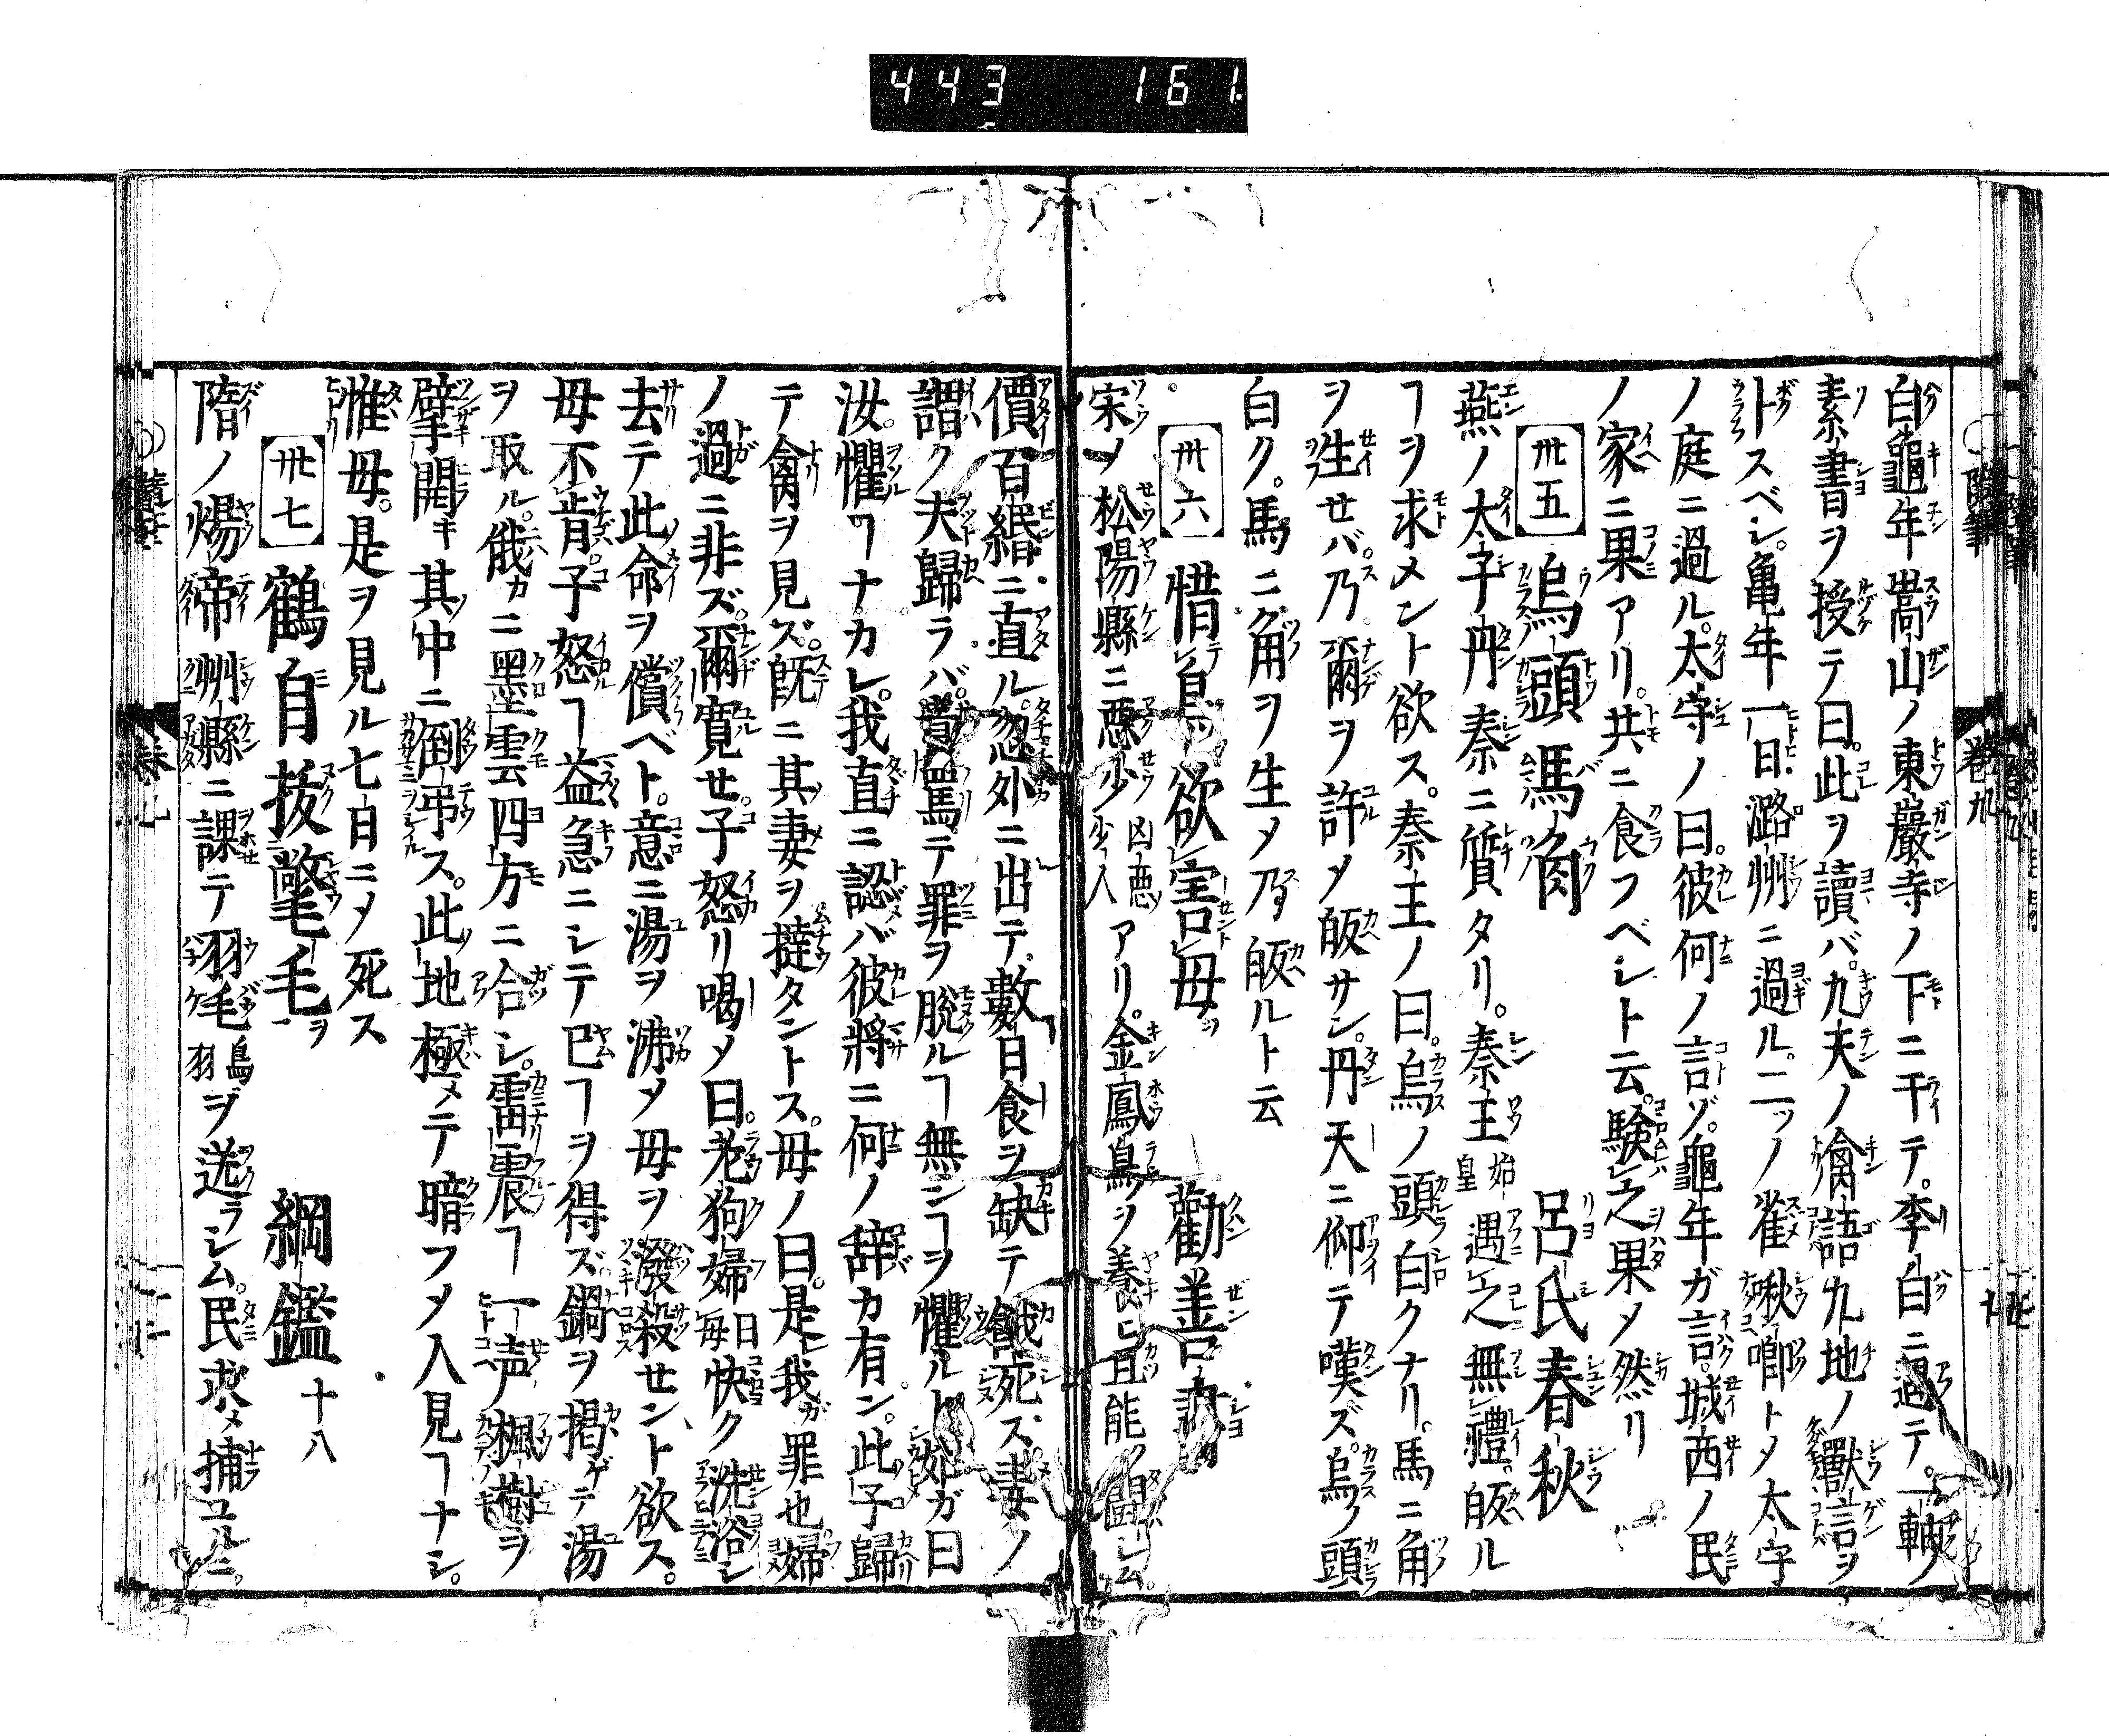 443 161
白龜年嵩山ノ東巖寺ノ下ニ于テ。李白ニ遇テ。一軸ノ
素書ヲ授テ曰。此ヲ讀バ。九天ノ禽語九地ノ獸言ヲ
卜スベシ。亀年一日潞州ニ過ル。二ツノ雀啾唧トメ太守
ノ庭ニ過ル太守ノ曰。彼何ノ言ゾ。龜年ガ言。城西ノ民
ノ家ニ果アリ。共ニ食フベシト云。験レ之果メ然リ
卅五 烏頭馬角 呂氏春秋
燕ノ太子丹秦ニ質タリ。秦王始皇遇レ之無レ禮。皈ル
ヿヲ求メント欲ス。秦王ノ曰。烏ノ頭白クナリ。馬ニ角
ヲ生セバ。乃爾ヲ許メ皈サン。丹天ニ仰テ嘆ズ。烏ノ頭
白ク。馬ニ角ヲ生メ乃皈ルト云
卅六 惜レ鳥欲レ害レ母ヲ 勸善書
宋ノ松陽縣ニ悪少凶悪少人アリ。金鳳鳥ヲ養ヒ且能ク闘シム。
價百緡ニ直ル。忽外ニ出テ數日食ヲ缺テ餓死ス妻ノ
謂ク夫歸ラバ。罵テ罪ヲ脱ルヿ無シヿヲ懼ルト姑ガ曰
汝。懼ヿナカレ。我直ニ認バ彼將ニ何ノ辞カ有ン。此子歸
テ禽ヲ見ズ。既ニ其妻ヲ撻タントス。母ノ曰。是我ガ罪也婦
ノ過ニ非ズ。爾寛セ。子怒リ喝メ曰。老狗婦毎日快ク洗浴シ
去テ此命ヲ償ベト。意ニ湯ヲ沸メ母ヲ潑殺セント欲ス。
母不レ肯子怒ヿ益急ニシテ已ヿヲ得ズ鍋ヲ掲ゲテ湯
ヲ取ル。俄カニ墨雲四方ニ合シ。雷震ヿ一声楓樹ヲ
擘開キ其中ニ倒弔ス。此地極メテ暗フメ人見ヿナシ。
惟母。是ヲ見ル七日ニメ死ス
卅七 鶴自拔氅毛ヲ 綱鑑十八
隋ノ煬帝州縣ニ課テ羽毛鳥羽ヲ送ラシム。民求メ捕ユルニ。
卷九